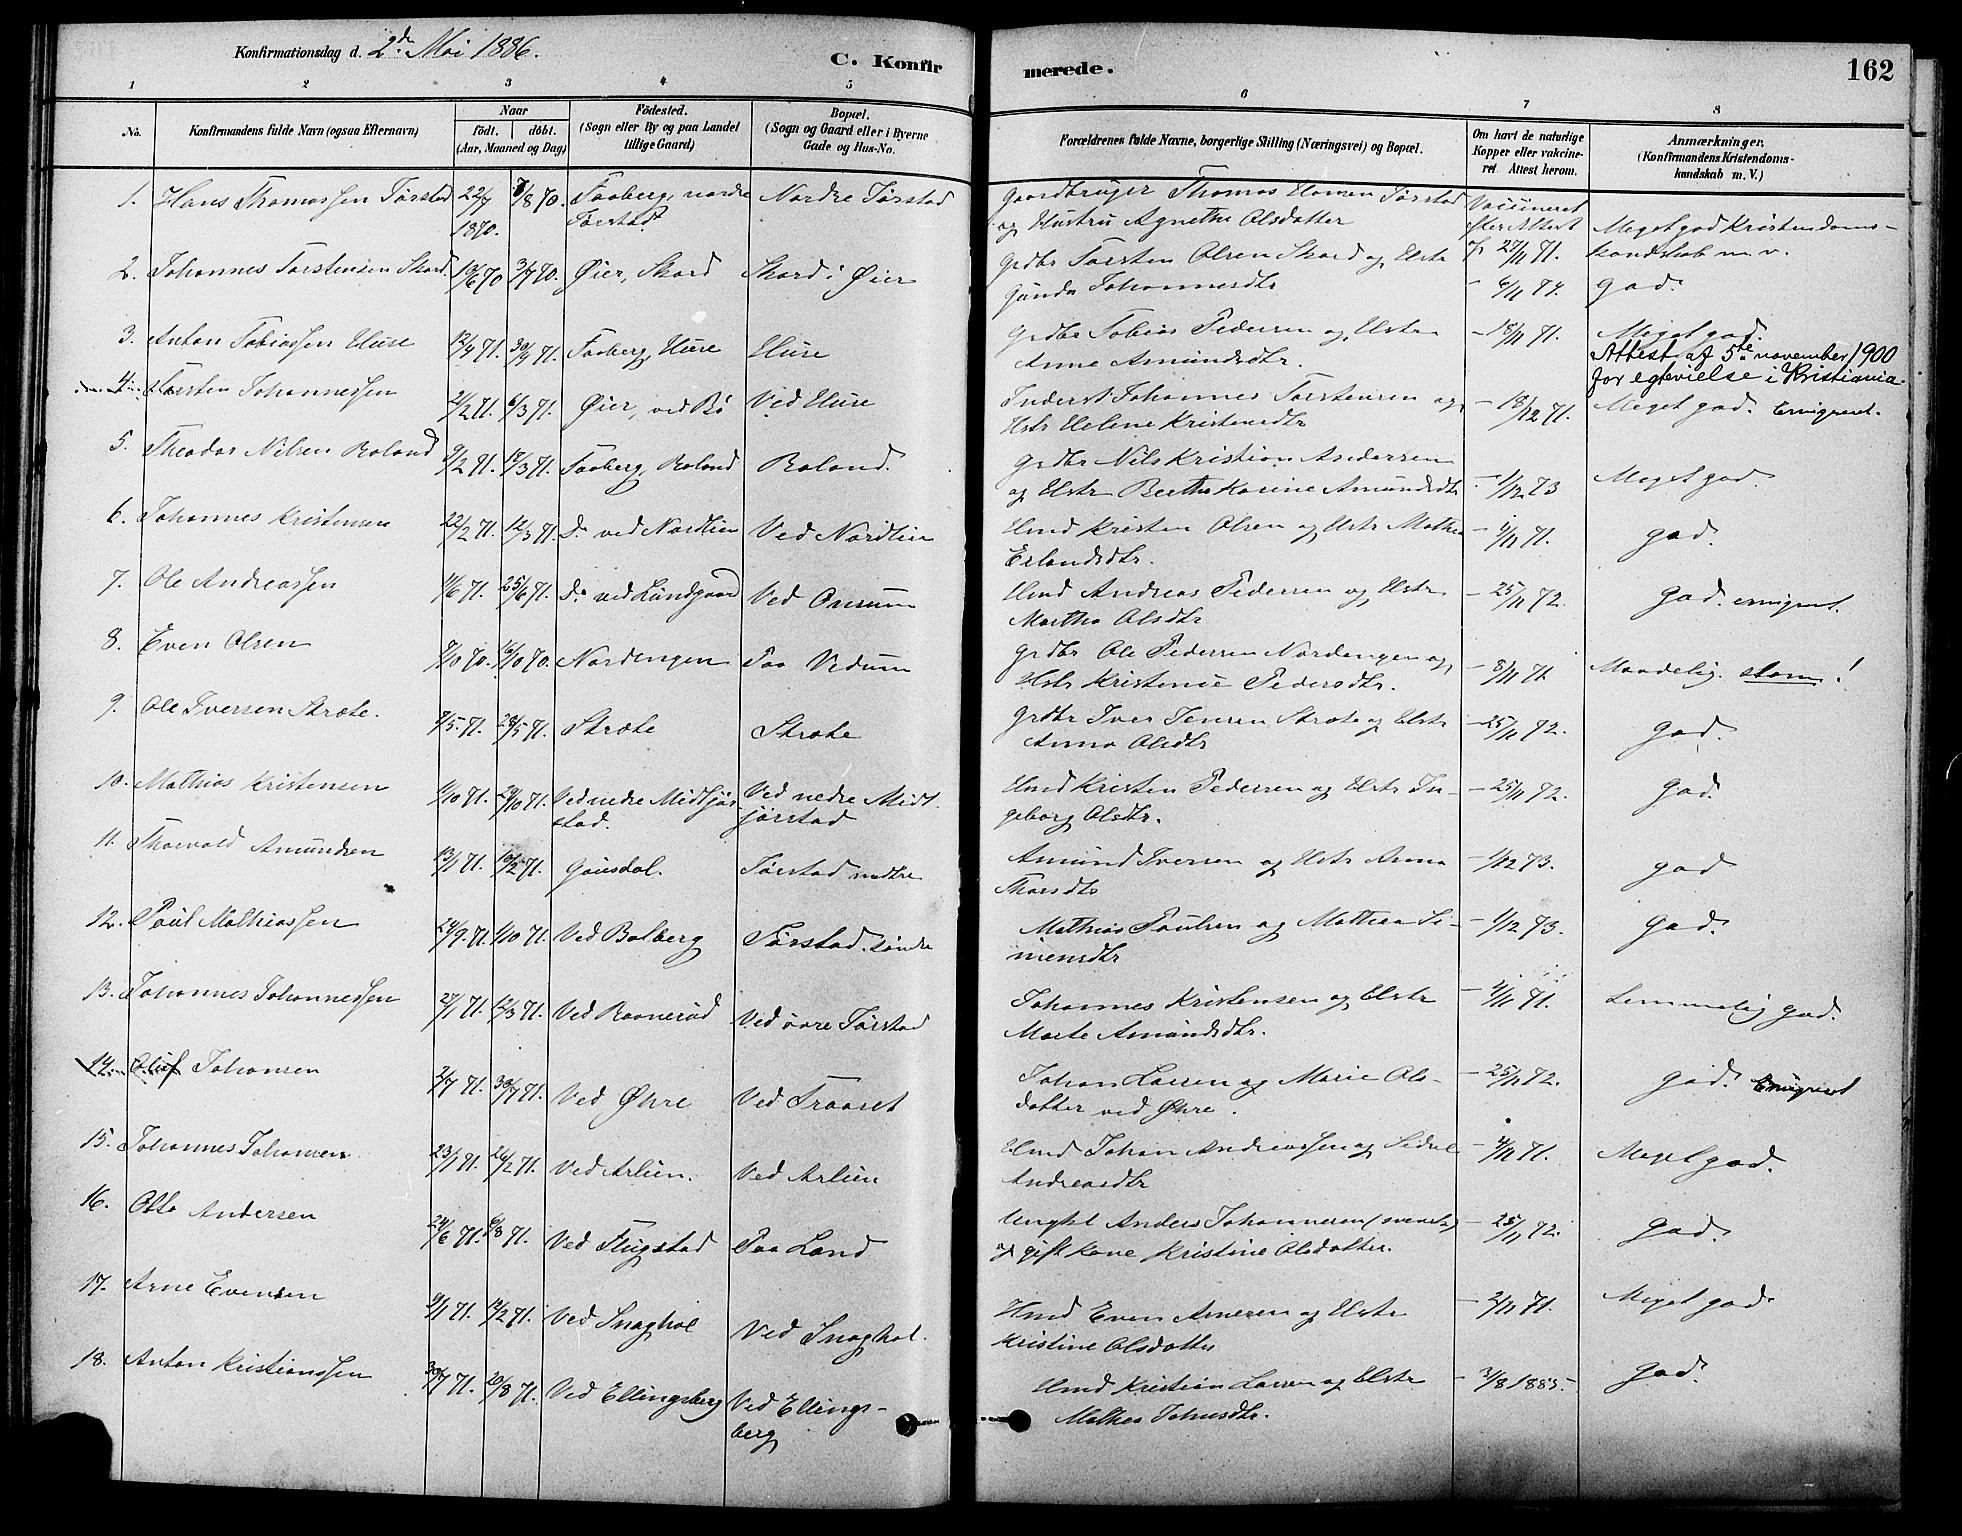 Konfirmationsdag d. 2de Mai 1886.
C. Konfirmerede.
162
1 2 3 4 5 6 7 8
No.
Konfirmandens fulde Navn (ogsaa Efternavn)
Naar
födt. döbt.
(Aar, Maaned og Dag)
Födested.
(Sogn eller By og paa Landet
tillige Gaard)
Bopæl.
(Sogn og Gaard eller i Byerne
Gade og Hus-No.
Forældrenes fulde Navne, borgerlige Stilling (Næringsvei) og Bopæl.
Om havt de naturlige
Kopper eller vakcine-
ret. Attest herom.
Anmærkninger.
(Konfirmandens Kristendoms-
kundskab m. V.)
1. Hans Thomassen Jørstad 22/7 1870. 7/8 70. Faaberg, nordre Jørstad Nordre Jørstad
Gaardbruger Thomas Hansen Jørstad
og Hustru Agnethe Olsdatter
Vaccineret
efter Attest
af 27/11 71.
Meget god Kristendoms-
kundskab m. v.
2. Johannes Torstensen Skard. 19/6 70 3/7 70. Øier, Skard Skard i Øier
Grdbr Torsten Olsen Skard og Hstr
Gunda Johannesdtr
- 6/11 74. god.
3. Anton Tobiassen Huse 12/4 71. 30/4 71. Faaberg, Huse Huse
Grdbr Tobias Pedersen og Hstr
Anne Amundsdtr.
- 18/11 71. Meget god.
Attest af 5te november 1900
for egtevielse i Kristiania.
4. Torsten Johannessen 21/2 71. 6/3 71. Øier, ved Bø Ved Huse
Inderst Johannes Torstensen og
Hstr Helene Kristensdtr
- 18/12 71. Meget god. Emigrent.
5. Theodor Nilsen Roland 9/2 71. 12/3 71. Faaberg, Roland Roland.
Grdbr Nils Kristian Andersen
og Hstr Berthe Karine Amundsdtr
- 1/12 73 Meget god.
6. Johannes Kristensen 22/2 71. 12/3 71. Do ved Nordlien Ved Nordlien
Hmd Kristen Olsen og Hstr Mathea
Erlandsdtr.
- 4/11 71. god.
7. Ole Andreassen 1/6 71. 25/6 71. Do ved Lundgaard Ved Onsum
Hmd Andreas Pedersen og Hstr
Martha Olsdtr
- 25/11 72. god. emigrent.
8. Even Olsen 7/10 70. 16/10 70. Nordengen Paa Vedum
Grdbr Ole Pedersen Nordengen og
Hstr Kristence Pedersdtr.
- 8/11 71. Maadelig. slem!
9. Ole Iversen Stræte. 7/5 71. 28/5 71. Stræte Stræte
Grdbr Iver Jensen Stræte og Hstr
Anna Olsdtr
- 25/11 72. god.
10. Mathias Kristensen 1/10 71. 29/10 71. Ved nedre Midtjør-
stad. Ved nedre Midt-
jørstad
Hmd Kristen Pedersen og Hstr In-
geborg Olsdtr.
- 25/11 72. god.
11. Thorvald Amundsen 13/1 71. 10/2 71. Gausdal. Jørstad nedtre
Amund Iversen og Hstr Anna
Thorsdtr
- 1/12 73. god
12. Paul Mathiassen 24/9 71. 1/10 71. Ved Balberg Jørstad søndre
Mathias Paulsen og Mathea Si-
mensdtr
- 1/12 73. god.
13. Johannes Johannessen 27/1 71. 12/3 71. Ved Ravnerud Ved øvre Jørstad
Johannes Kristensen og Hstr
Marte Amundsdtr.
- 4/11 71. Temmelig god.
14. Oluf Johansen 2/7 71. 30/7 71. Ved Øvre Ved Traaset
Johan Larsen og Marie Ols-
datter ved Øvre.
- 25/11 72. god. Emigrent
15. Johannes Johansen 23/1 71. 26/2 71. Ved Arlien. Ved Arlien
Hmd Johan Andreassen og
Andreasdtr
- 4/11 71. Meget god.
16. Otto Andersen 24/6 71. 6/8 71. Ved Flugstad Paa Land
Ungkl Anders Johannesen (svensk)
og gift Kone Kristine Olsdatter.
- 25/11 72. god.
17. Arne Evensen 9/1 71. 12/2 71. Ved Snaghol Ved Snaghol.
Hmd Even Arnesen og Hstr
Kristine Olsdatter
- 2/11 71. Meget god
18. Anton Kristianssen 30/7 71. 20/8 71. Ved Ellingsberg Ved Ellings-
berg
Hmd Kristian Larsen og Hstr
Mathea Johnsdtr.
- 3/8 1885. god.